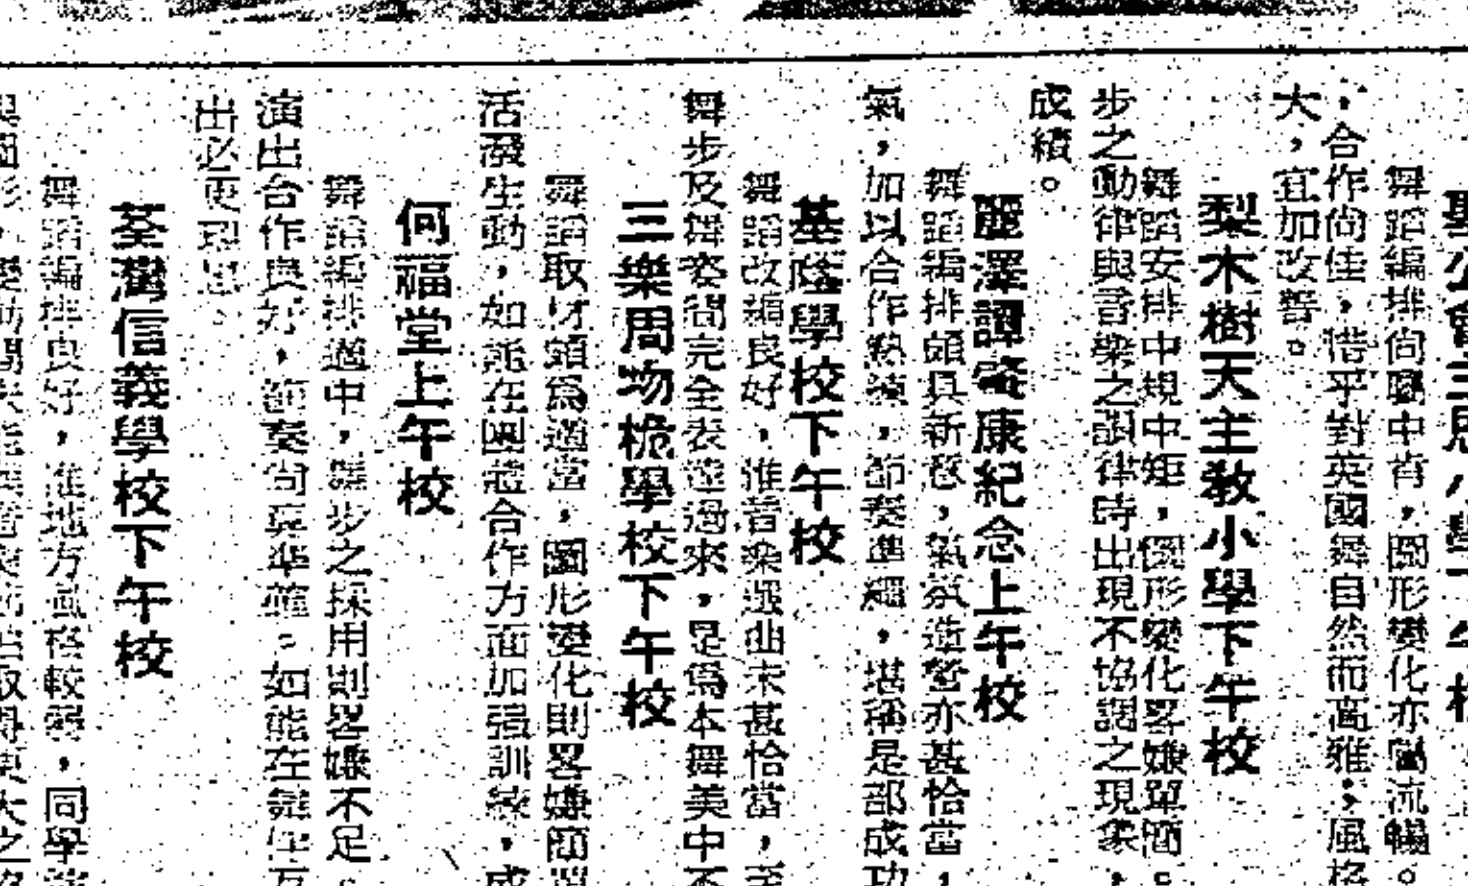 聖公會主恩小學下午校
舞蹈編排尚屬中肯,圖形變化亦屬流暢。
,合作尚佳,惜乎對英國舞自然而高雅;風格
大,宜加改善。
梨木樹天主教小學下午校
舞蹈安排中規中矩,圖形變化畧嫌單簡。
步之動律與音樂之韻律時出現不協調之現象,
成績。
麗澤譚容康紀念上午校
舞蹈編排頗具新意,氣氛造營亦甚恰當,
氣,加以合作熟練,節奏準繩,堪稱是部成功
基蔭學校下午校
舞蹈改編良好,惟音樂選曲未甚恰當,至
舞步及舞姿間完全表達過來,是爲本舞美中不
三樂周㘯桅學校下午校
舞蹈取材頗爲適當,圖形變化則畧嫌簡單
活潑生動,如能在團體合作方面加强訓練,成
何福堂上午校
舞蹈編排適中,舞步之採用則畧嫌不足。
演出合作良好,節奏尙算準確。如能在舞步互
出必更理想。
荃灣信義學校下午校
舞蹈編排良好,惟地方風格較弱,同學演
與圖形,變動間未能